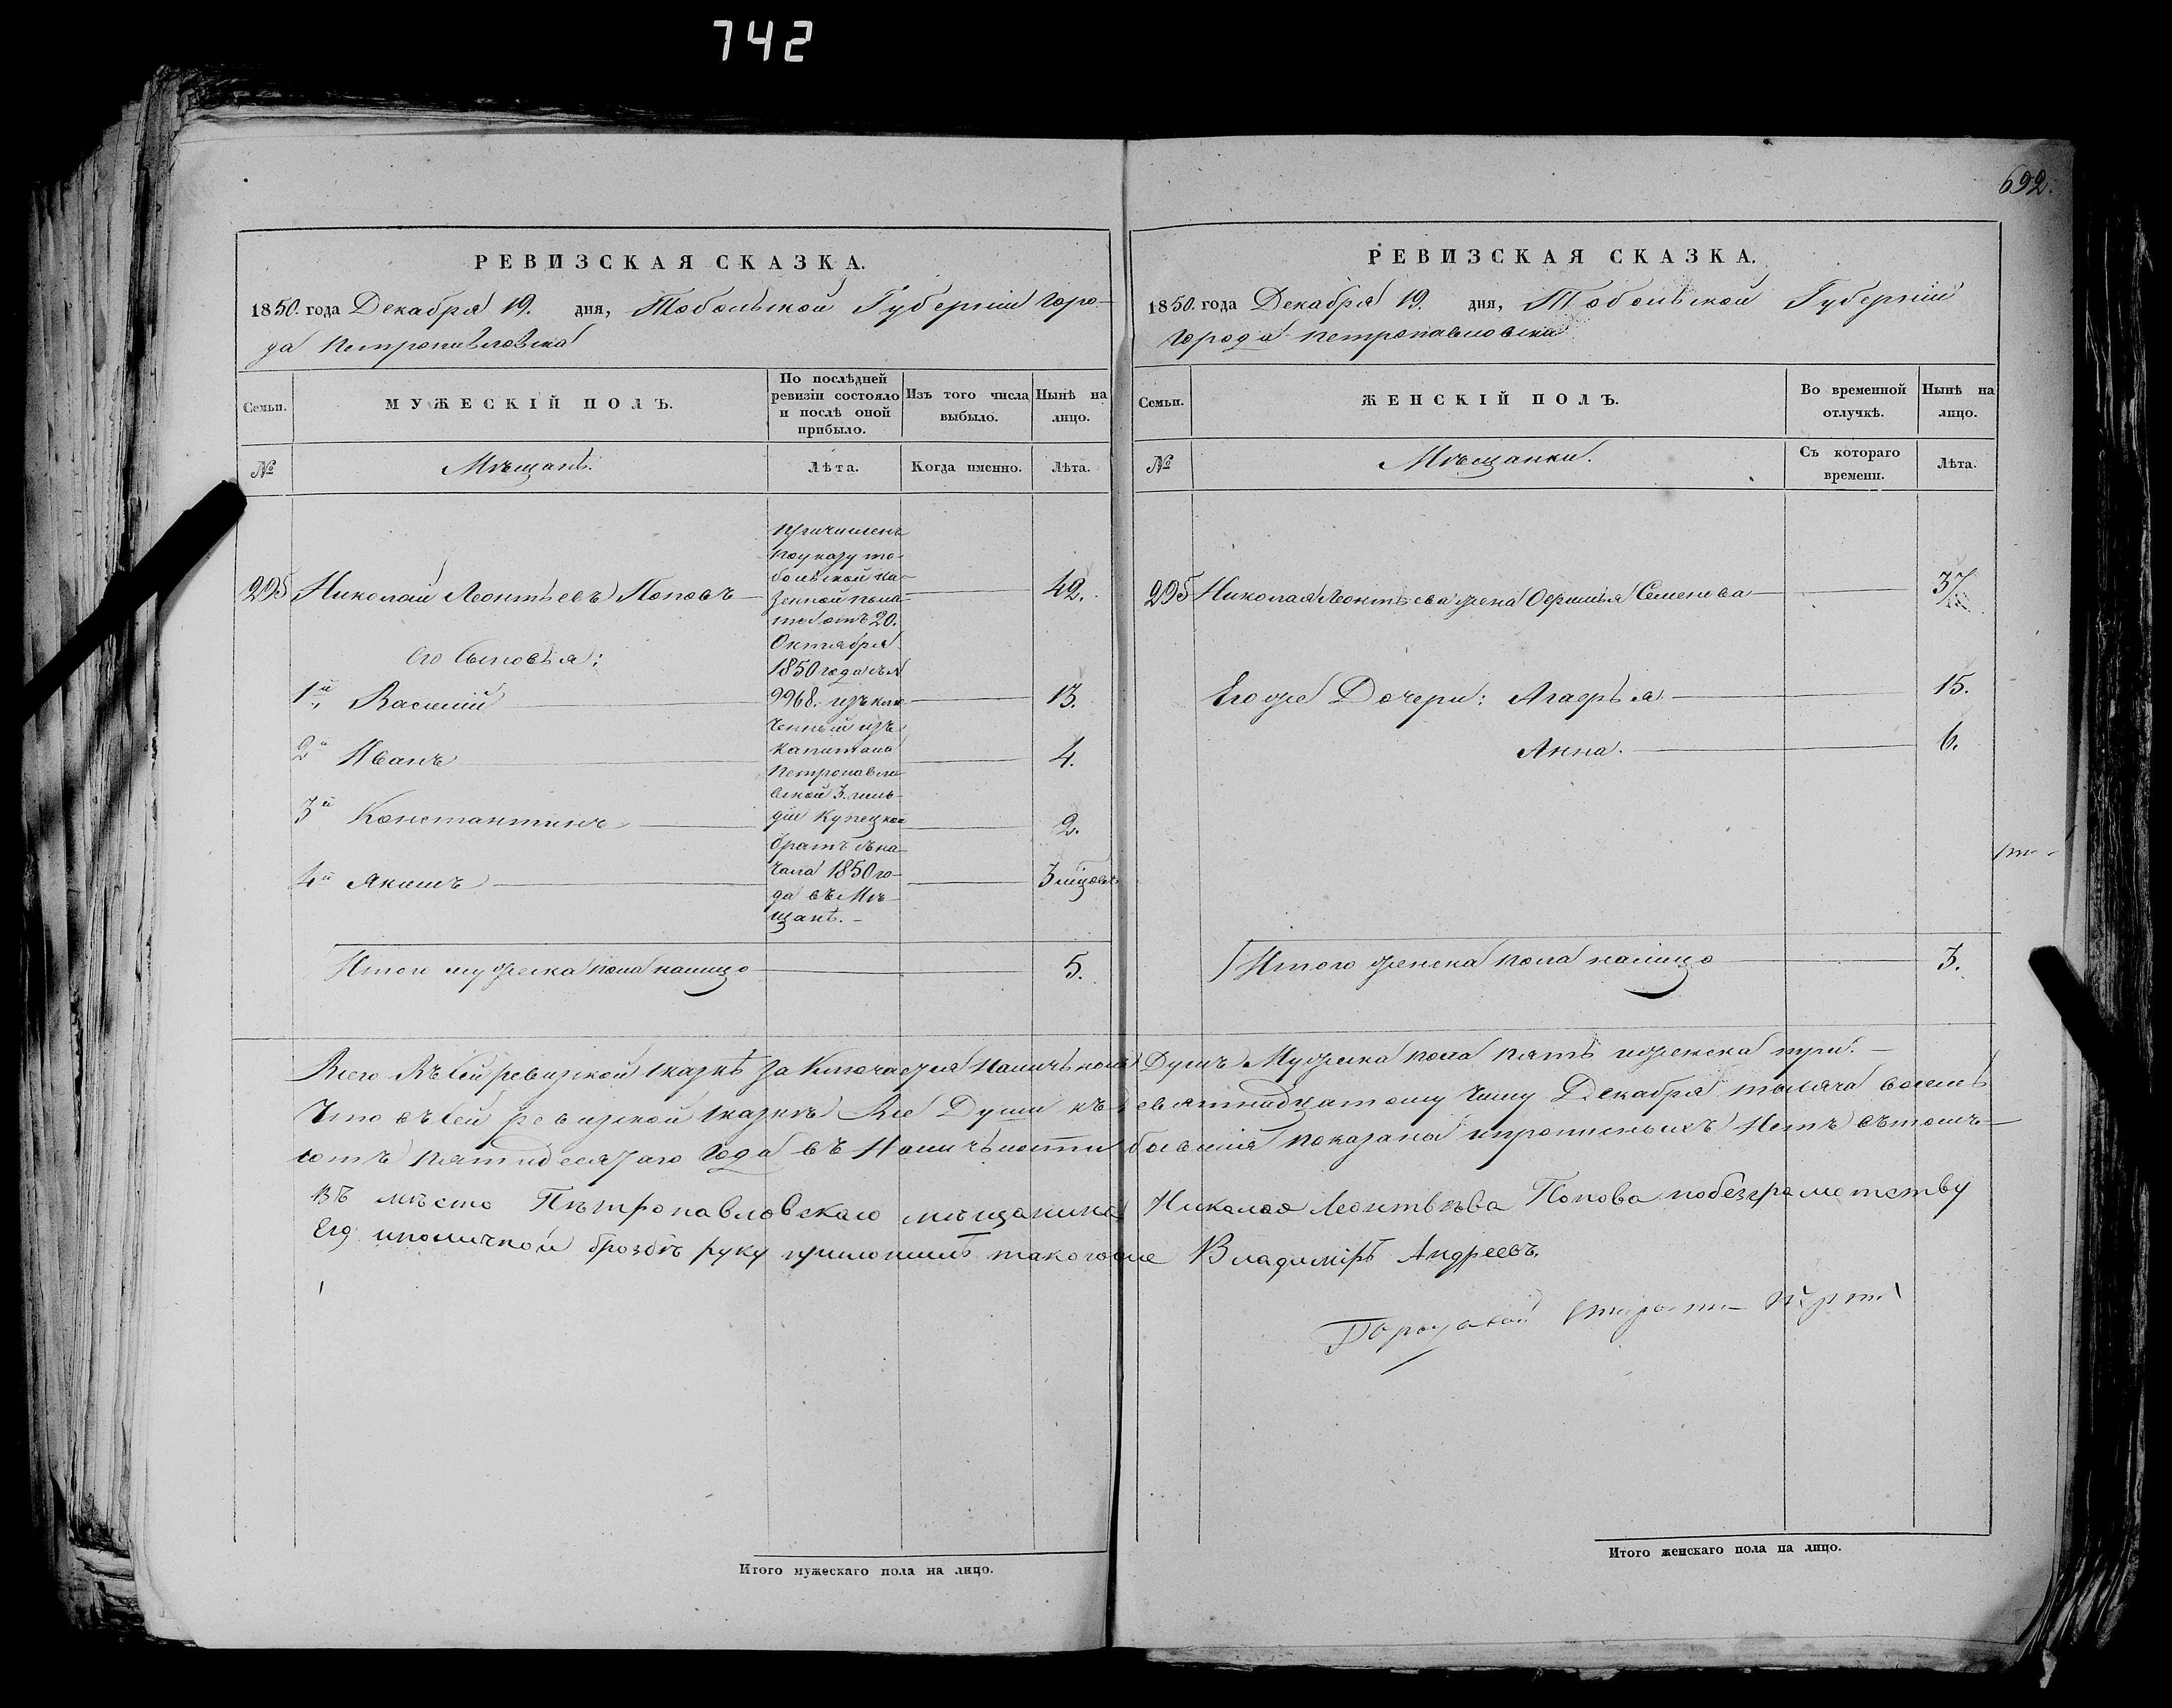 742
692.
РЕВИЗСКАЯ СКАЗКА.
1850. года Декабря 19. дня, Тобольской Губерніи Горо-
да Петропавловска
Семьи.
МУЖЕСКІЙ ПОЛЪ.
По послѣдней
ревизіи состояло
и послѣ оной
прибыло.
Изъ того числа
выбыло.
Нынѣ на
лицо.
№
Мѣщанъ.
Лѣта.
Когда именно.
Лѣта.
Причисленъ
поуказу то-
больской ка-
зенной пала
ты отъ 20.
Октября
1850 года за №
9968. изъ клю
ченный изъ
капитала
Петропавло
вской 3. гиль-
діи Купецкой
братъ съ на-
чала 1850 го-
да въ Мѣ-
щанѣ. -
225 Николай Леонтьевъ Поповъ 42.
Его Сыновья:
1й Василий 13.
2й Иванъ 4.
3й Константинъ 2.
4й Якимъ 3 мѣсяц
Итого мужеска пола налицо 5.
РЕВИЗСКАЯ СКАЗКА.
1850. года Декабря 19. дня, Тобольской Губерніи
Города Петропавловска
Семьи.
ЖЕНСКІЙ ПОЛЪ.
Во временной
отлучкѣ.
Нынѣ на
лицо.
№
Мѣщанки.
Съ котораго
времени.
Лѣта.
225 Николая Леонтьева жена Офимья Семенова 37
Его же Дочери: Агафья 15.
Анна. 6.
Итого женска пола налицо 3.
Всего Въ сей ревизской сказкѣ заключается Наличныхъ Душъ Мужеска пола пять иженска три. -
Что въ сей ревизской сказкѣ Все Души къ девятнадцатому числу Декабря тысяча восемь
сотъ пятидесятаго Года въ Наличьности бывшия показаны ипрописныхъ Нетъ вътомъ-
Въ мѣсто Пѣтропавловскаго мѣщанина Николая Леонтьѣва Попова побезграмотству
Его иполичной прозбѣ руку приложилъ такогоже Владимиръ Андреевъ.
Городовой Староста
Итого мужескаго пола на лицо.
Итого женскаго пола на лицо.